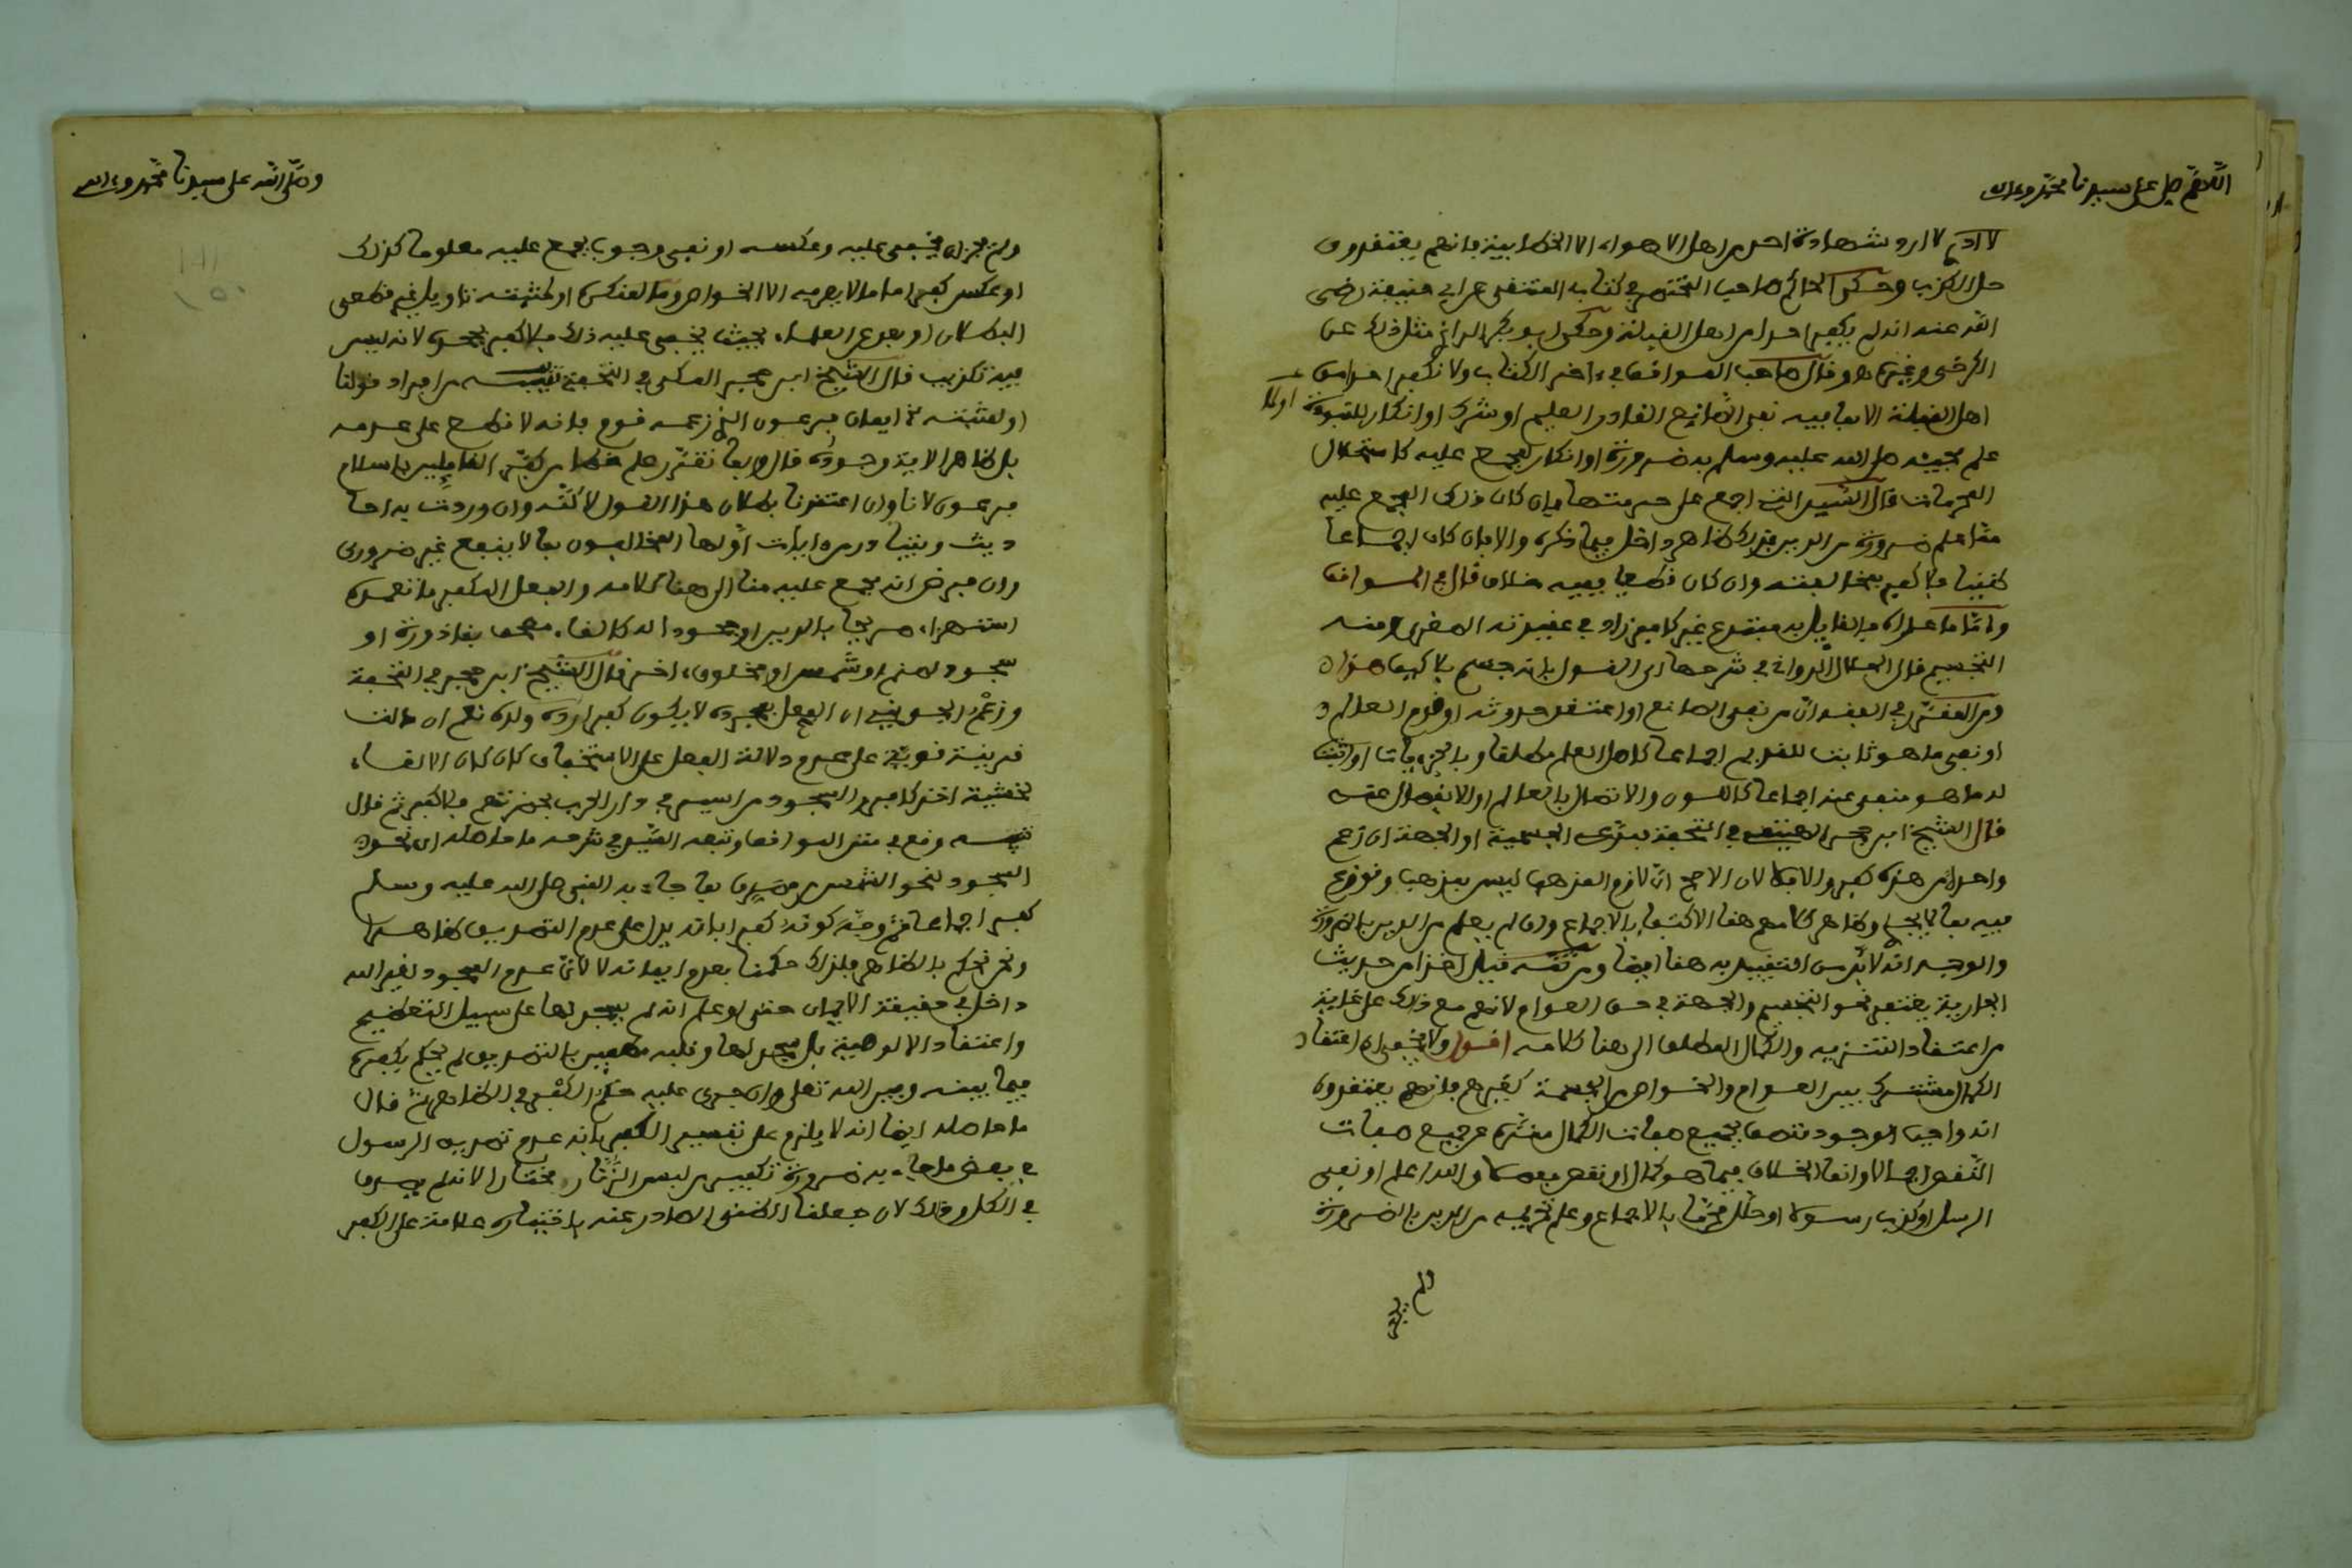 اللهم صل على سيدنا محمد وءاله
لا ارد شهادة احد من اهل الاهواء الا الخطابية فانهم يعتقدون
حل الكذب وحكى الحاكم صاحب المختصر في كتاب المنتقى عن ابي حنيفة رضي
الله عنه انه لم يكفر احدا من اهل القبلة وحكى ابو بكر الرازي مثل ذلك عن
الكرخي وغيره وقال صاحب المواقف في ءاخر الكتاب ولا نكفر احدا من
اهل القبلة الا بما فيه نفي الصانع القادر العليم او شرك او انكار للنبوة او لما
علم مجيئه صلى الله عليه وسلم به ضرورة او انكار لمجمع عليه كاستحلال
المحرمات قال السيد التي اجمع على حرمتها فان كان ذلك المجمع عليه
مما علم ضرورة من الدين فذاك ظاهر داخل فيما ذكره والا فان كان اجماعا
ظنيا فلا كفر بمخالفته وان كان قطعيا ففيه خلاف قال في المواقف
واما ما عداه فالقايل به مبتدع غير كافر زاد في عقيدته العضدية ومنه
التجسيم قال الجلال الدواني في شرحها اي القول بانه جسم بلا كيف هذا
ومن المفسر في العقد ان من نفى الصانع او اعتقد حدوثه او قدم العالم
او نفى ما هو ثابت للقديم اجماعا كاصل العلم مطلقا او بالجزييات او اثبت
له ما هو منفي عنه اجماعا كاللون والاتصال بالعالم او الانفصال عنه
قال الشيخ ابن حجر الهيتمي في التحفة فمدعي الجسمية او الجهة ان زعم
واحدا من هذه كفر والا فلا لان الاصح ان لازم المذهب ليس بمذهب ونوزع
فيه بما لا يجدي وظاهر كلامهم هنا الاكتفا بالاجماع وان لم يعلم من الدين بالضرورة
والوجه انه لا بد من التقييد به هنا ايضا ومن ثم قيل اخذا من حديث
الجارية يغتفر نحو التجسيم والجهة في حق العوام لانهم مع ذلك على غاية
من اعتقاد التنزيه والكمال المطلق الى هنا كلامه اقول ولا يخفى ان اعتقاد
الكمال مشترك بين العوام والخواص من المجسمة كغيرهم فانهم يعتقدون
انه واجب الوجود متصف بجميع صفات الكمال منزه عن جميع صفات
النقص اجمالا وانما الخلاف فيما هو كمال او نقص مفصلا والله اعلم او نفى
الرسل او كذب رسولا او حلل محرما بالاجماع وعلم تحريمه من الدين بالضرورة
ولم يجز
وصلى الله على سيدنا محمد وءاله
ولم يجز ان يخفى عليه وعكسه او نفى وجوب مجمع عليه معلوما كذلك
او عكس كفر اما ما لا يعرفه الا الخواص وما لمنكره او لمثبته تاويل غير قطعي
البطلان او بعد عن العلماء بحيث يخفى عليه ذلك فلا كفر بجحده لانه ليس
فيه تكذيب قال الشيخ ابن حجر المكي في التحفة تنبيه من افراد قولنا
او لمثبته الخ ايمان فرعون الذي زعمه قوم فانه لا قطع على عدمه
بل ظاهر الاية وجوده قال وبما تقرر علم خطا من كفر القايلين باسلام
فرعون لانا وان اعتقدنا بطلان هذا القول لاكنه وان وردت به احا
ديث وتبادر من ءايات اولها المخالفون بما لا ينفع غير ضروري
وان فرض انه مجمع عليه منا الى هنا كلامه والفعل المكفر ما تعمده
استهزاء صريحا بالدين او جحودا له كالقاء مصحف بقاذورة او
سجود لصنم او شمس او مخلوق ءاخر قال الشيخ ابن حجر في التحفة
وزعم الجويني ان الفعل بمجرده لا يكون كفرا رده ولده نعم ان دلت
قرينة قوية على عدم دلالة الفعل على الاستخفاف كان كان الالقاء
لخشية اخذ كافر او السجود من اسير في دار الحرب بحضرتهم فلا كفر ثم قال
تنبيه وقع في متن المواقف وتبعه السيد في شرحه ما حاصله ان نحو
السجود لنحو الشمس من مصدق بما جاء به النبي صلى الله عليه وسلم
كفر اجماعا ثم وجه كونه كفرا بانه يدل على عدم التصديق ظاهرا
ونحن نحكم بالظاهر فلذلك حكمنا بعدم ايمانه لا لان عدم السجود لغير الله
داخل في حقيقة الايمان حتى لو علم انه لم يسجد لها على سبيل التعظيم
واعتقاد الالوهية بل سجد لها وقلبه مطمين بالتصديق لم يحكم بكفره
فيما بينه وبين الله تعلى وان جرى عليه حكم الكفر في الظاهر ثم قال
ما حاصله ايضا انه لا يلزم على تفسير الكفر بانه عدم تصديق الرسول
في بعض ما جاء به ضرورة تكفير من لبس الزنار مختارا لانه لم يصدق
في الكل وذلك لان جعلنا الظني الصادر عنه باختياره علامة على الكفر